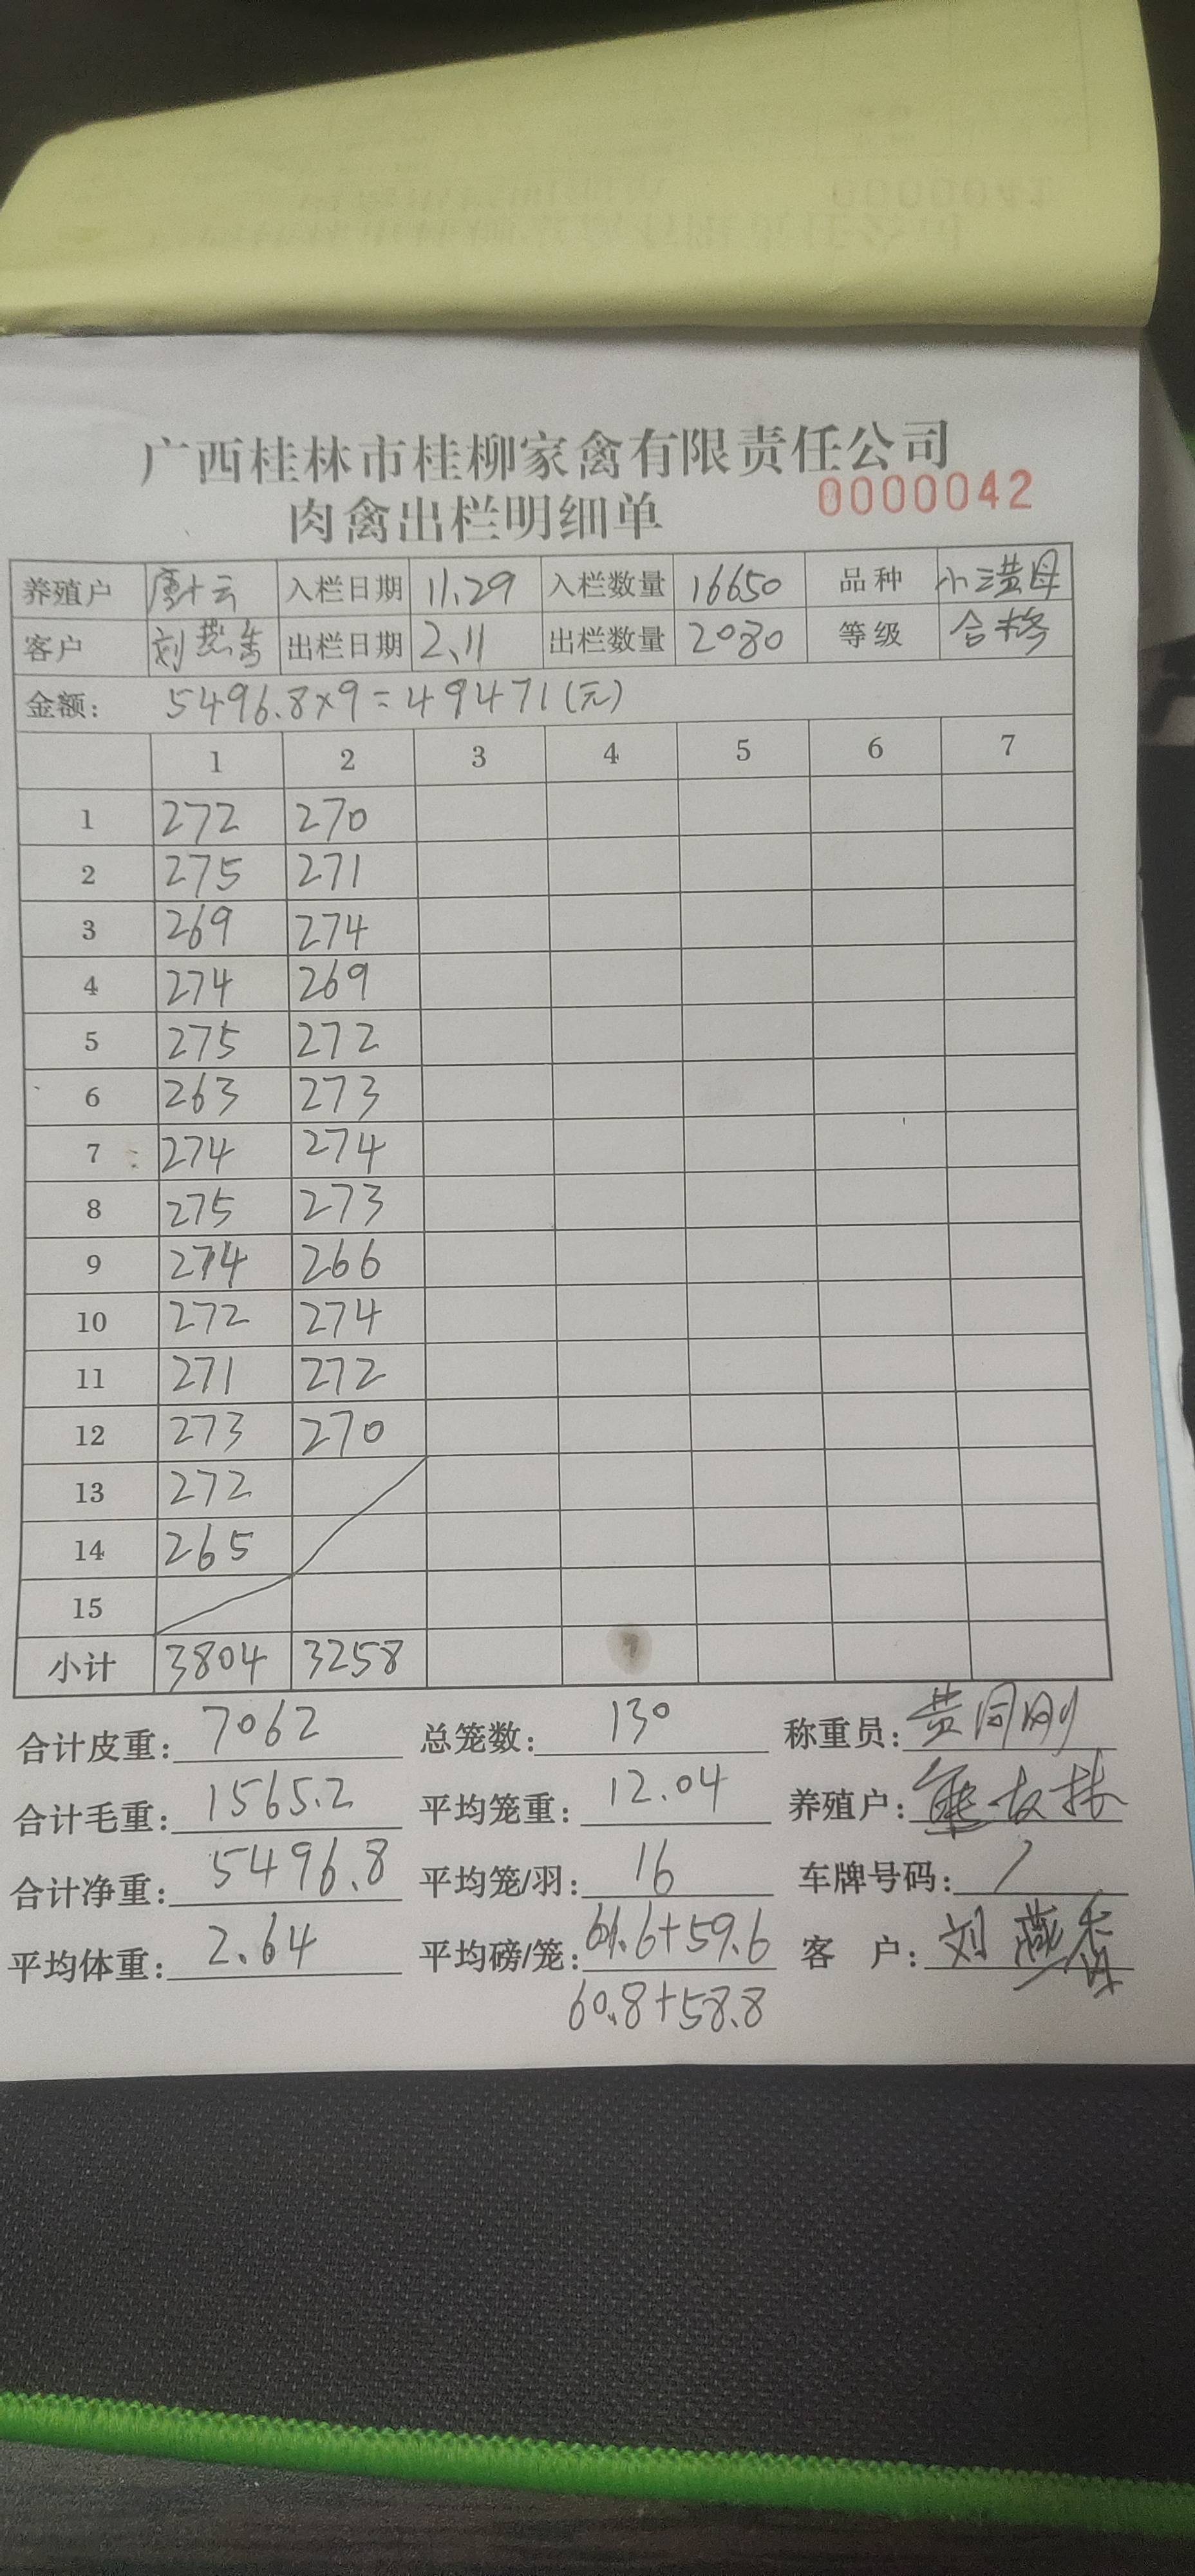 广西桂林市桂柳家禽有限责任公司
肉禽出栏明细单 0000042
养殖户 唐十云 入栏日期 11.29 入栏数量 16650 品种 小三黄母
客户 刘燕香 出栏日期 2.11 出栏数量 2080 等级 合格
金额: 5496.8×9=49471(元)
1 2 3 4 5 6 7
1 272 270
2 275 271
3 269 274
4 274 269
5 275 272
6 263 273
7 274 274
8 275 273
9 274 266
10 272 274
11 271 272
12 273 270
13 272
14 265
15
小计 3804 3258
合计皮重: 7062 总笼数: 130 称重员: 黄同刚
合计毛重: 1565.2 平均笼重: 12.04 养殖户:
合计净重: 5496.8 平均笼/羽: 16 车牌号码: /
平均体重: 2.64 平均磅/笼: 61.6+59.6 客 户: 刘燕香
60.8+58.8